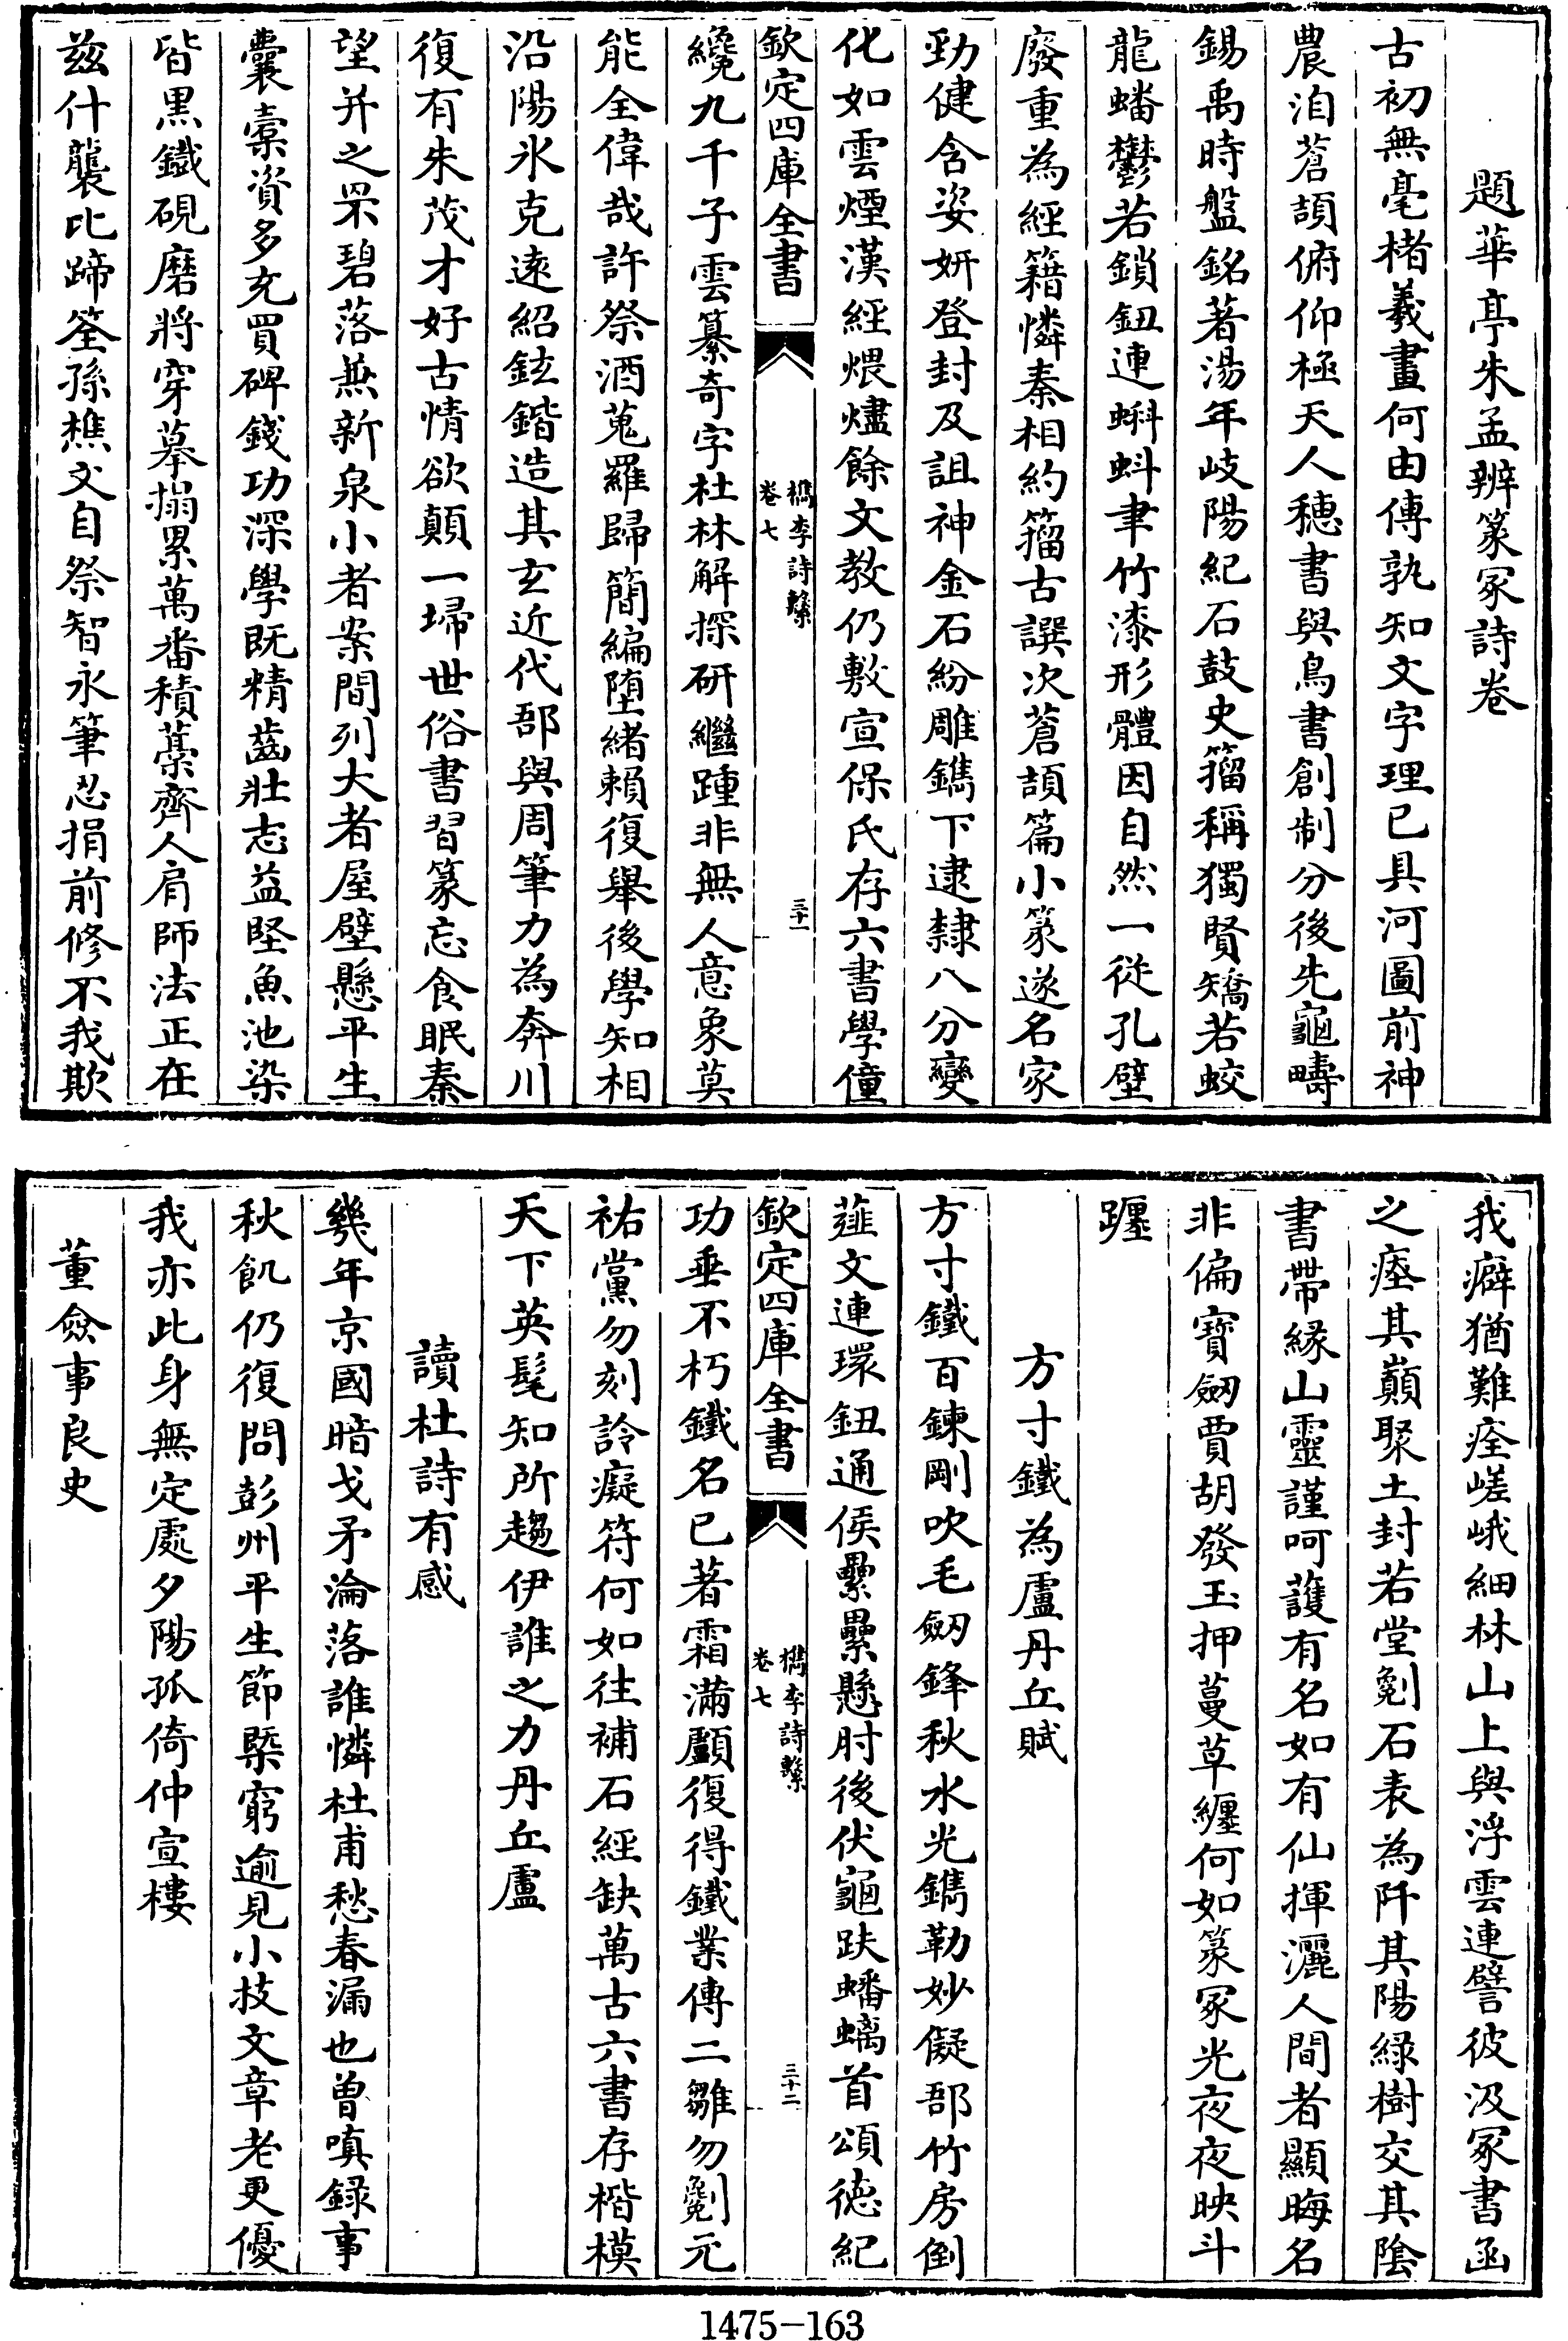 題華亭朱孟辨篆冢詩卷
古初無毫楮羲畫何由傳孰知文字理已具河圖前神
農洎蒼頡俯仰極天人穗書與鳥書創制分後先龜疇
錫禹時盤銘著湯年岐陽紀石鼓史籀稱獨賢矯若蛟
龍蟠鬱若鎖鈕連蝌蚪聿竹漆形體因自然一從孔壁
廢重為經籍憐秦相約籀古譔次蒼頡篇小篆遂名家
勁健含姿妍登封及詛神金石紛雕鐫下逮隸八分變
化如雲煙漢經煨燼餘文教仍敷宣保氏存六書學僮
欽定四庫全書
檇李詩繫
卷七
三十一
纔九千子雲纂奇字杜林解探研繼踵非無人意象莫
能全偉哉許祭酒蒐羅歸簡編墮緒賴復舉後學知相
沿陽氷克遠紹鉉鍇造其玄近代郚與周筆力為奔川
復有朱茂才好古情欲顛一埽世俗書習篆忘食眠秦
望并之罘碧落兼新泉小者案間列大者屋壁懸平生
囊橐資多充買碑錢功深學既精齒壯志益堅魚池染
皆黒鐵硯磨將穿摹搨累萬番積藁齊人肩師法正在
兹什襲比蹄筌孫樵文自祭智永筆忍捐前修不我欺
我癖猶難痊嵯峨細林山上與浮雲連譬彼汲冢書函
之瘞其巔聚土封若堂劖石表為阡其陽緑樹交其陰
書帶緣山靈謹呵護有名如有仙揮灑人間者顯晦名
非偏寶劒賈胡發玉押蔓草纒何如篆冢光夜夜映斗
躔
方寸鐵為盧丹丘賦
方寸鐵百鍊剛吹毛劒鋒秋水光鐫勒妙儗郚竹房倒
薤文連環鈕通侯纍纍懸肘後伏龜趺蟠螭首頌徳紀
欽定四庫全書
檇李詩繫
卷七
三十二
功垂不朽鐵名已著霜滿顱復得鐵業傳二雛勿劖元
祐黨勿刻詅癡符何如往補石經缺萬古六書存楷模
天下英髦知所趨伊誰之力丹丘盧
讀杜詩有感
幾年京國暗戈矛淪落誰憐杜甫愁春漏也曽嗔録事
秋飢仍復問彭州平生節槩窮逾見小技文章老更優
我亦此身無定處夕陽孤倚仲宣樓
董僉事良史
1475-163